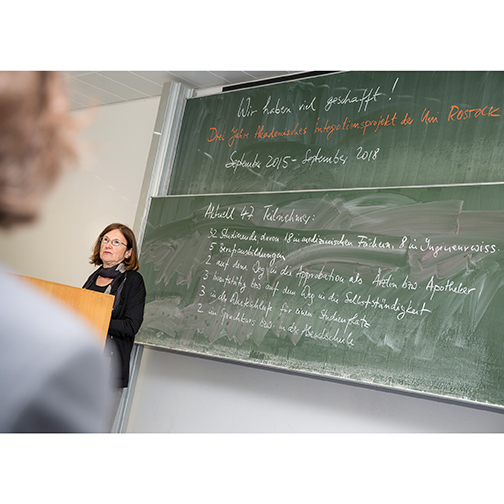 Wir haben viel geschafft!
Drei Jahre Akademisches Integrationsprojekt der Uni ROSTOCK
September 2015 - September 2018
Aktuell 47 Teilnehmer:
32 Studierende davon 18 in medizinischen Fächern, 8 in Ingenieurwiss.
5 Berufsausbildungen
2 auf dem Weg in die Approbation als Ärztin bzw Apotheker
3 berufstätig bzw auf dem Weg in die Selbstständigkeit
3 in der Warteschleife für einen Studienplatz
2 im Sprachkurs bzw in der Abendschule